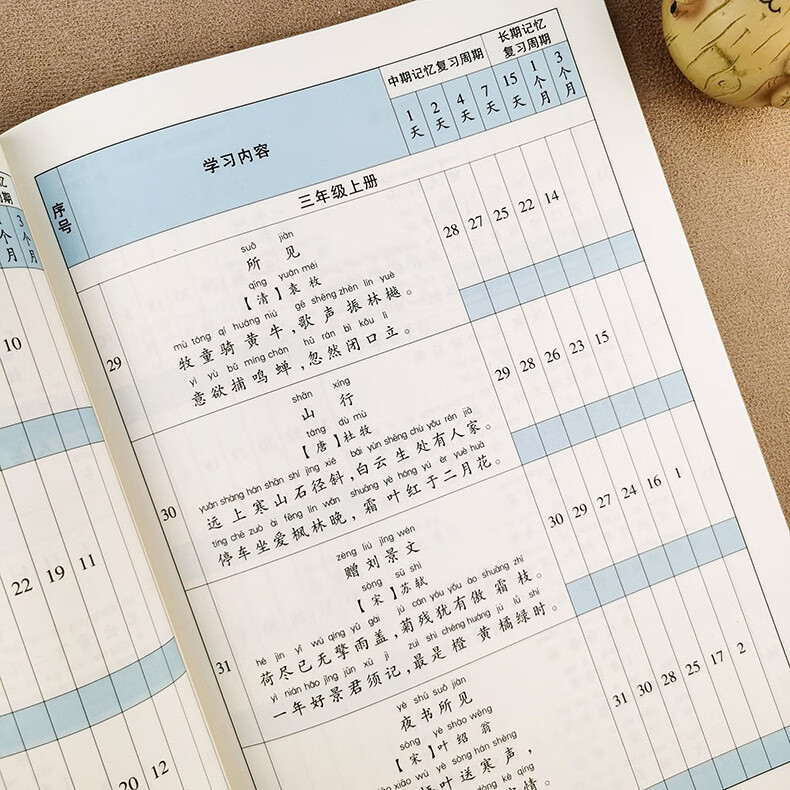 序号
学习内容
中期记忆复习周期
长期记忆
复习周期
1天 2天 4天 7天 15天 1个月 3个月
三年级上册
29
suǒ jiàn
所 见
qīng yuán méi
【清】袁枚
mù tóng qí huáng niú gē shēng zhèn lín yuè
牧童骑黄牛,歌声振林樾。
yì yù bǔ míng chán hū rán bì kǒu lì
意欲捕鸣蝉,忽然闭口立。
28 27 25 22 14
30
shān xíng
山 行
táng dù mù
【唐】杜牧
yuǎn shàng hán shān shí jìng xié bái yún shēng chù yǒu rén jiā
远上寒山石径斜,白云生处有人家。
tíng chē zuò ài fēng lín wǎn shuāng yè hóng yú èr yuè huā
停车坐爱枫林晚,霜叶红于二月花。
29 28 26 23 15
31
zèng liú jǐng wén
赠刘景文
sòng sū shì
【宋】苏轼
hé jìn yǐ wú qíng yǔ gài jú cán yóu yǒu ào shuāng zhī
荷尽已无擎雨盖,菊残犹有傲霜枝。
yì nián hǎo jǐng jūn xū jì zuì shì chéng huáng jú lǜ shí
一年好景君须记,最是橙黄橘绿时。
30 29 27 24 16 1
yè shū suǒ jiàn
夜书所见
sòng yè shào wēng
【宋】叶绍翁
xiāo wú yè sòng hán shēng
梧叶送寒声,
dòng kè qíng
客情。
31 30 28 25 17 2
记忆
周期
个月
3个月
10
22 19 11
20 12